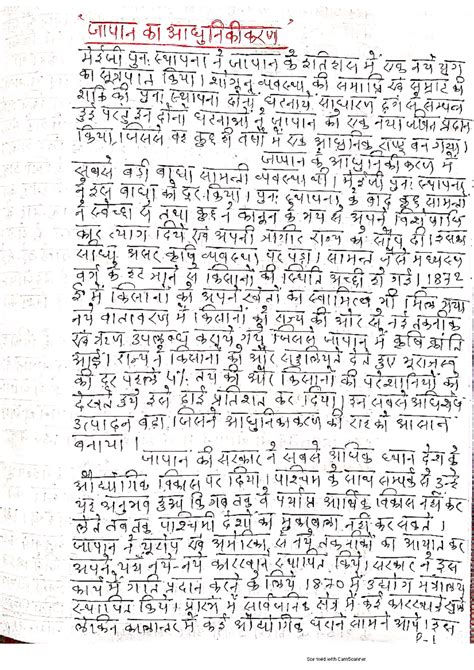 "जापान का आधुनिकीकरण"
मेईजी पुनः स्थापना ने जापान के इतिहास में एक नये युग
का सूत्रपात किया। शोगुन व्यवस्था की समाप्ति एवं सम्राट की
शक्ति की पुनः स्थापना दोनों घटनायें साधारण ढंग से सम्पन्न
हुई परन्तु इन दोनों घटनाओं ने जापान को एक नया जीवन प्रदान
किया, जिससे वह कुछ ही वर्षों में एक आधुनिक राष्ट्र बन गया।
जापान के आधुनिकीकरण में
सबसे बड़ी बाधा सामन्ती व्यवस्था थी। मेईजी पुनः स्थापना
ने इस बाधा को दूर किया। पुनः स्थापना के बाद कुछ सामन्तों
ने स्वेच्छा से तथा कुछ ने कानून के भय से अपने विशेषाधि
कार त्याग दिये एवं अपनी जागीर राज्य को सौंप दी। इसका
सीधा असर कृषि व्यवस्था पर पड़ा। सामन्त जैसे मध्यस्थ
वर्ग के हट जाने से किसानों की स्थिति अच्छी हो गई। 1872
ई० में किसानों को अपने खेतों का स्वामित्व भी मिल गया
नये वातावरण में किसानों को राज्य की ओर से नई तकनीक
एवं ऋण उपलब्ध कराये गये जिससे जापान में कृषि क्रांति
आई। राज्य ने किसानों को और सहूलियत देते हुए भूराजस्व
की दर पहले 4% तय की और किसानों की परेशानियों को
देखते हुये इसे ढाई प्रतिशत कर दिया। इन सबसे अधिशेष
उत्पादन बढ़ा जिसने आधुनिकीकरण की राह को आसान
बनाया।
जापान की सरकार ने सबसे अधिक ध्यान देश के
औद्योगिक विकास पर दिया। पश्चिम के साथ सम्पर्क से उन्हें
यह अनुभव हुआ कि जब तक वे पर्याप्त आर्थिक विकास नहीं कर
लेते तब तक पाश्चिमी देशों का मुकाबला नहीं कर सकते।
जापान ने यूरोप एवं अमेरिका से नये तकनीकों का आयात कर
अपने यहाँ नये-नये कारखाने स्थापित किये। सरकार ने इस
कार्य में गति प्रदान करने के लिये 1870 में उद्योग मंत्रालय
स्थापित किया। प्रारंभ में सार्वजनिक क्षेत्र में कई कारखाने खुले
लेकिन कालान्तर में कई औद्योगिक घराने सामने आये।
P-1
Scanned with CamScanner